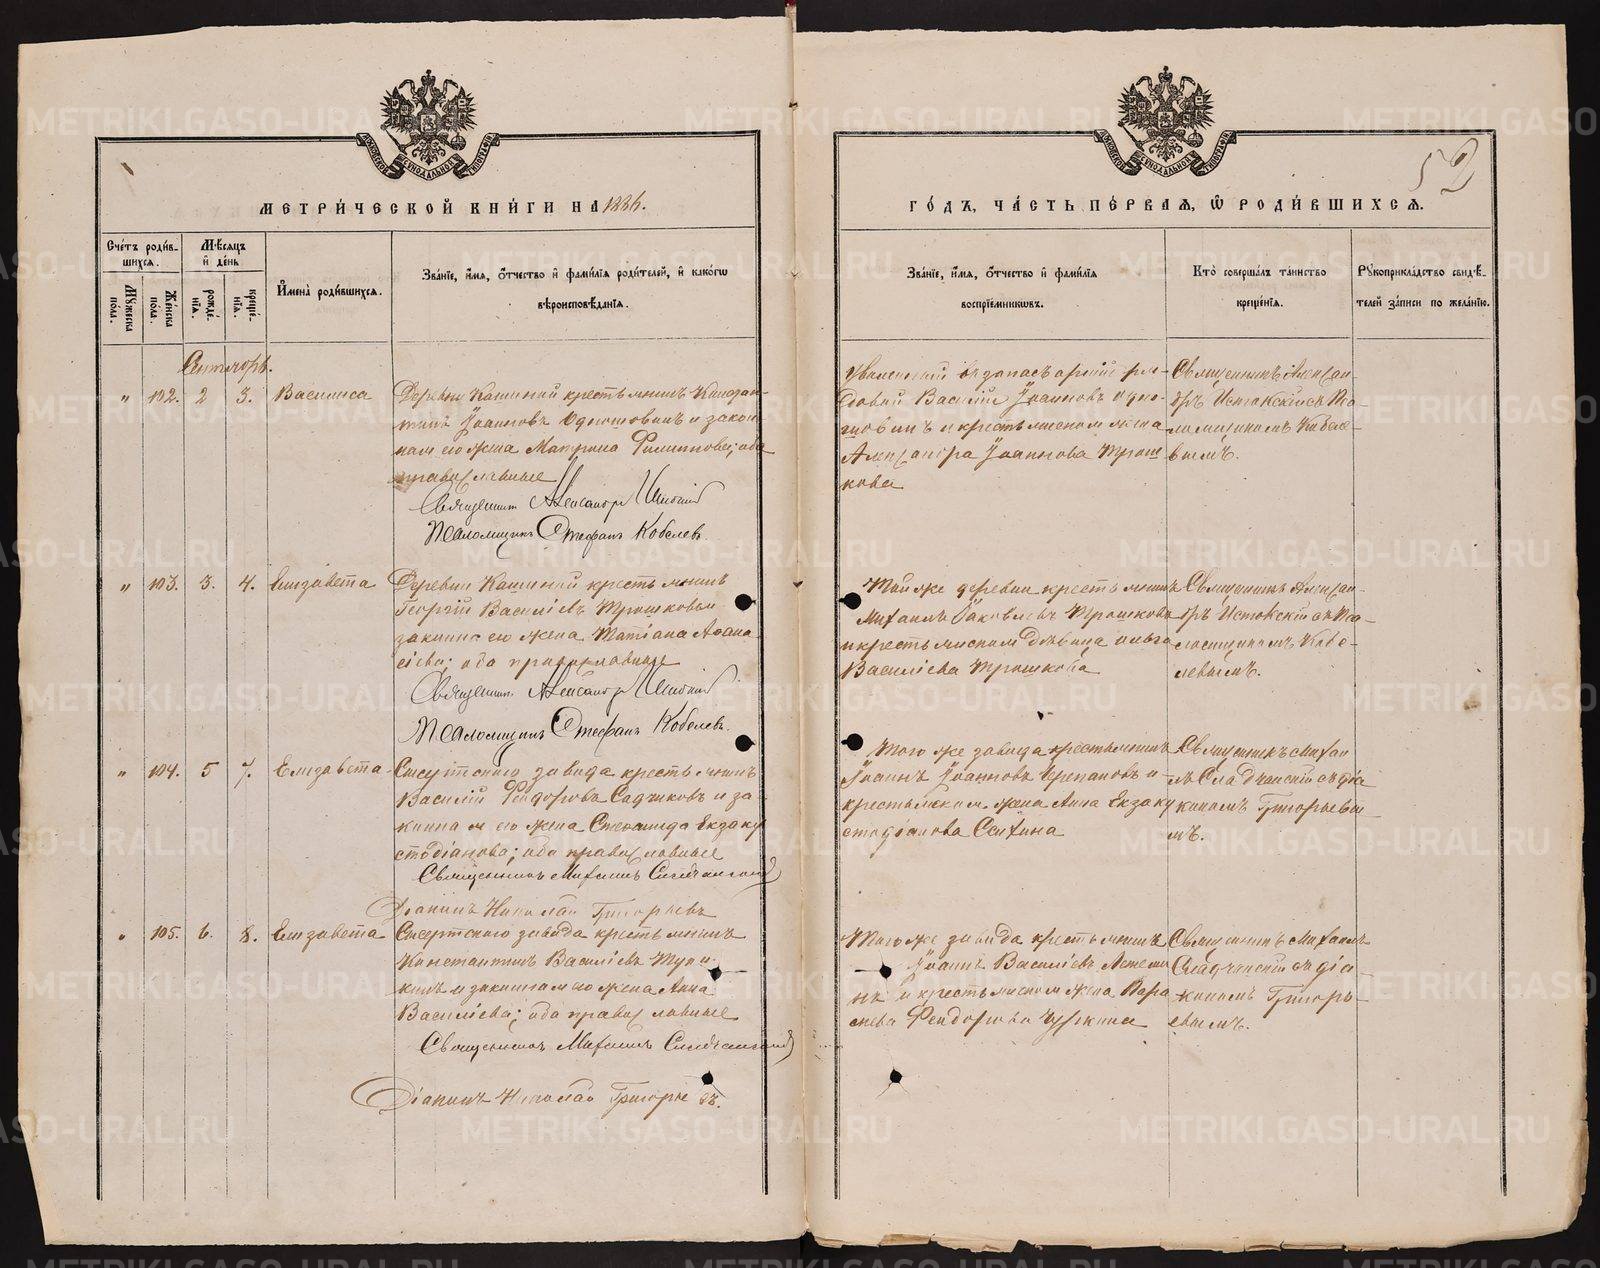 52
МЕТРИ́ЧЕСКОЙ КНИ́ГИ НА 1886.
ГО́ДЪ, ЧА́СТЬ ПЕ́РВАЯ, Ѡ РОДИ́ВШИХСЯ.
Сче́тъ роди́в-
шихся.
Мѣсяцъ
и де́нь
Му́жеска
по́ла.
Же́нска
пола.
рожде́-
нїя.
креще́-
нїя.
И҆мена̀ роди́вшихся.
Зва́нїе, и҆́мя, ѻ҆́тчество и҆ фами́лїя роди́телей, и҆ како́гѡ
вѣроисповѣ́данїя.
Зва́нїе, и҆́мя, ѻ҆́тчество и҆ фами́лїя
воспрїе́мникѡвъ.
Кто̀ соверша́лъ та́инство
креще́нїя.
Рꙋкоприкла́дство свидѣ́-
телей за́писи по жела́нїю.
Сентябрь.
" 102. 2 3. Василиса
Деревни Кашиной крестьянинъ
Іоанновъ и закон-
ная его жена Матрона Филиппова; оба
православные
Священникъ Александръ
Псаломщикъ Стефанъ Кобелевъ.
Уволенный въ запасъ арміи ря-
довой Василій Іоанновъ
и крестьянская жена
Александра Іоаннова Трош
кова
Священникъ Алексан-
дръ Истокскій съ Пса-
ломщикомъ Кобеле-
вымъ.
" 103. 3. 4. Елизавета
Деревни Кашиной крестьянинъ
Георгій Василіевъ Трошковъ и
законная его жена Татіана Афана
сіева; оба православные
Священникъ Александръ
Псаломщикъ Стефанъ Кобелевъ.
Той же деревни крестьянинъ
Михаилъ Іаковлевъ Трошковъ
и крестьянская дѣвица Ольга
Василіева Трошкова
Священникъ Алексан-
дръ Истокскій съ Пса-
ломщикомъ Кобе-
левымъ.
" 104. 5 7. Елизавета
Сысертскаго завода крестьянинъ
Василій Феодоровъ Садчиковъ и за
конная его жена Степанида Екзаку
стодіанова; оба православные
Священникъ Михаилъ
Діаконъ Николай Григорьевъ
Того же завода крестьянинъ
Іоаннъ Іоанновъ Черепановъ и
крестьянская жена Анна Екзаку
стодіанова
Священникъ Михаи
лъ съ діа
кономъ Григорьевы
мъ.
" 105. 6. 8. Елизавета
Сысертскаго завода крестьянинъ
Константинъ Василіевъ
и законная его жена Анна
Василіева; оба православные
Священникъ Михаилъ
Діаконъ Николай Григорьевъ.
Того же завода крестьянинъ
Іоаннъ Василіевъ
и крестьянская жена
Феодорова Чуркина
Священникъ Михаилъ
съ діа-
кономъ Григорь-
евымъ.